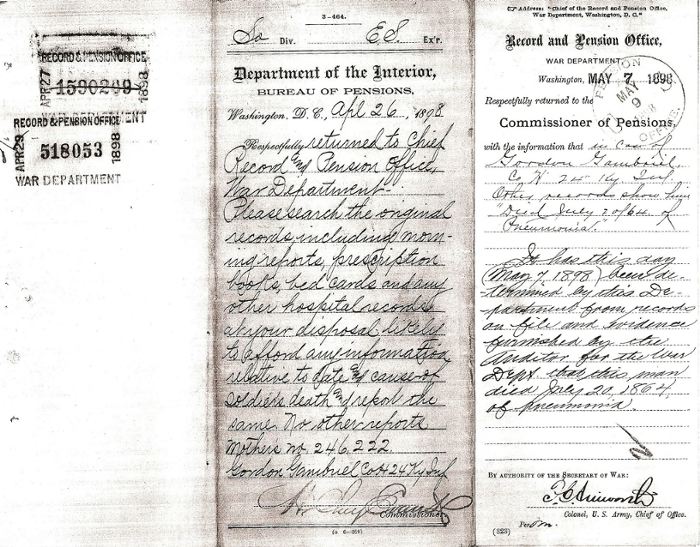 RECORD & PENSION OFFICE
APR 27
1590249
1898
WAR DEPARTMENT
RECORD & PENSION OFFICE
APR 29
518053
1898
WAR DEPARTMENT
3-464.
So Div. E.S. Ex'r.
Department of the Interior,
BUREAU OF PENSIONS,
Washington, D. C., Apl 26, 1898
Respectfully returned to Chief
Record and Pension Office,
War Department-
Please search the original
records, including morn-
ing reports, prescription
books, bed cards and any
other hospital records
at your disposal likely
to afford any information
relative to date & cause of
soldiers death & report the
same. No other reports
Mothers no. 246,222
Gordon Gambriel Co H 24 Ky Inf
Commissioner
Address: "Chief of the Record and Pension Office,
War Department, Washington, D. C."
Record and Pension Office,
WAR DEPARTMENT,
Washington, MAY 7, 1898
PENSION
MAY
9
OFFICE
Respectfully returned to the
Commissioner of Pensions,
with the information that in case of
Gordon Gambriel
Co 24" Ky Inf.
Other records show him
"Died July 7 of 64 of
Pneumonia."
It has this day
(May 7, 1898) been de-
termined by this De-
partment from records
on file and evidence
furnished by the
Auditor for the War
Dept. that this man
died July 20, 1864,
of pneumonia.
BY AUTHORITY OF THE SECRETARY OF WAR:
F C Ainsworth
Colonel, U. S. Army, Chief of Office.
Per
(323)